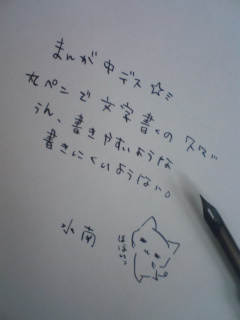 まんが中デス☆ミ
丸ペンで文字書くの スマヅ
うん、書きやすいような
書きにくいようない。
氷南
ははは…